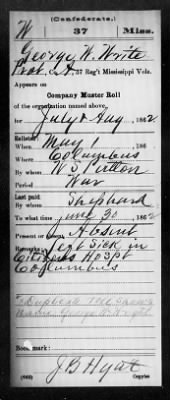 (Confederate.)
W 37 Miss.
George W. Write
Pvt, Co. A, 37 Reg't Mississippi Vols.
Appears on
Company Muster Roll
of the organization named above,
for July & Aug, 1862
Enlisted:
When May 1, 186
Where Columbus
By whom W S Patton
Period War
Last paid:
By whom Shephard
To what time June 30, 1862
Present or absent Absent
Remarks: Left Sick in
Citizens Hospt
Columbus
Duplicate Roll Shows
name George W. Wright
Book mark:
J B Hyatt
(642) Copyist.